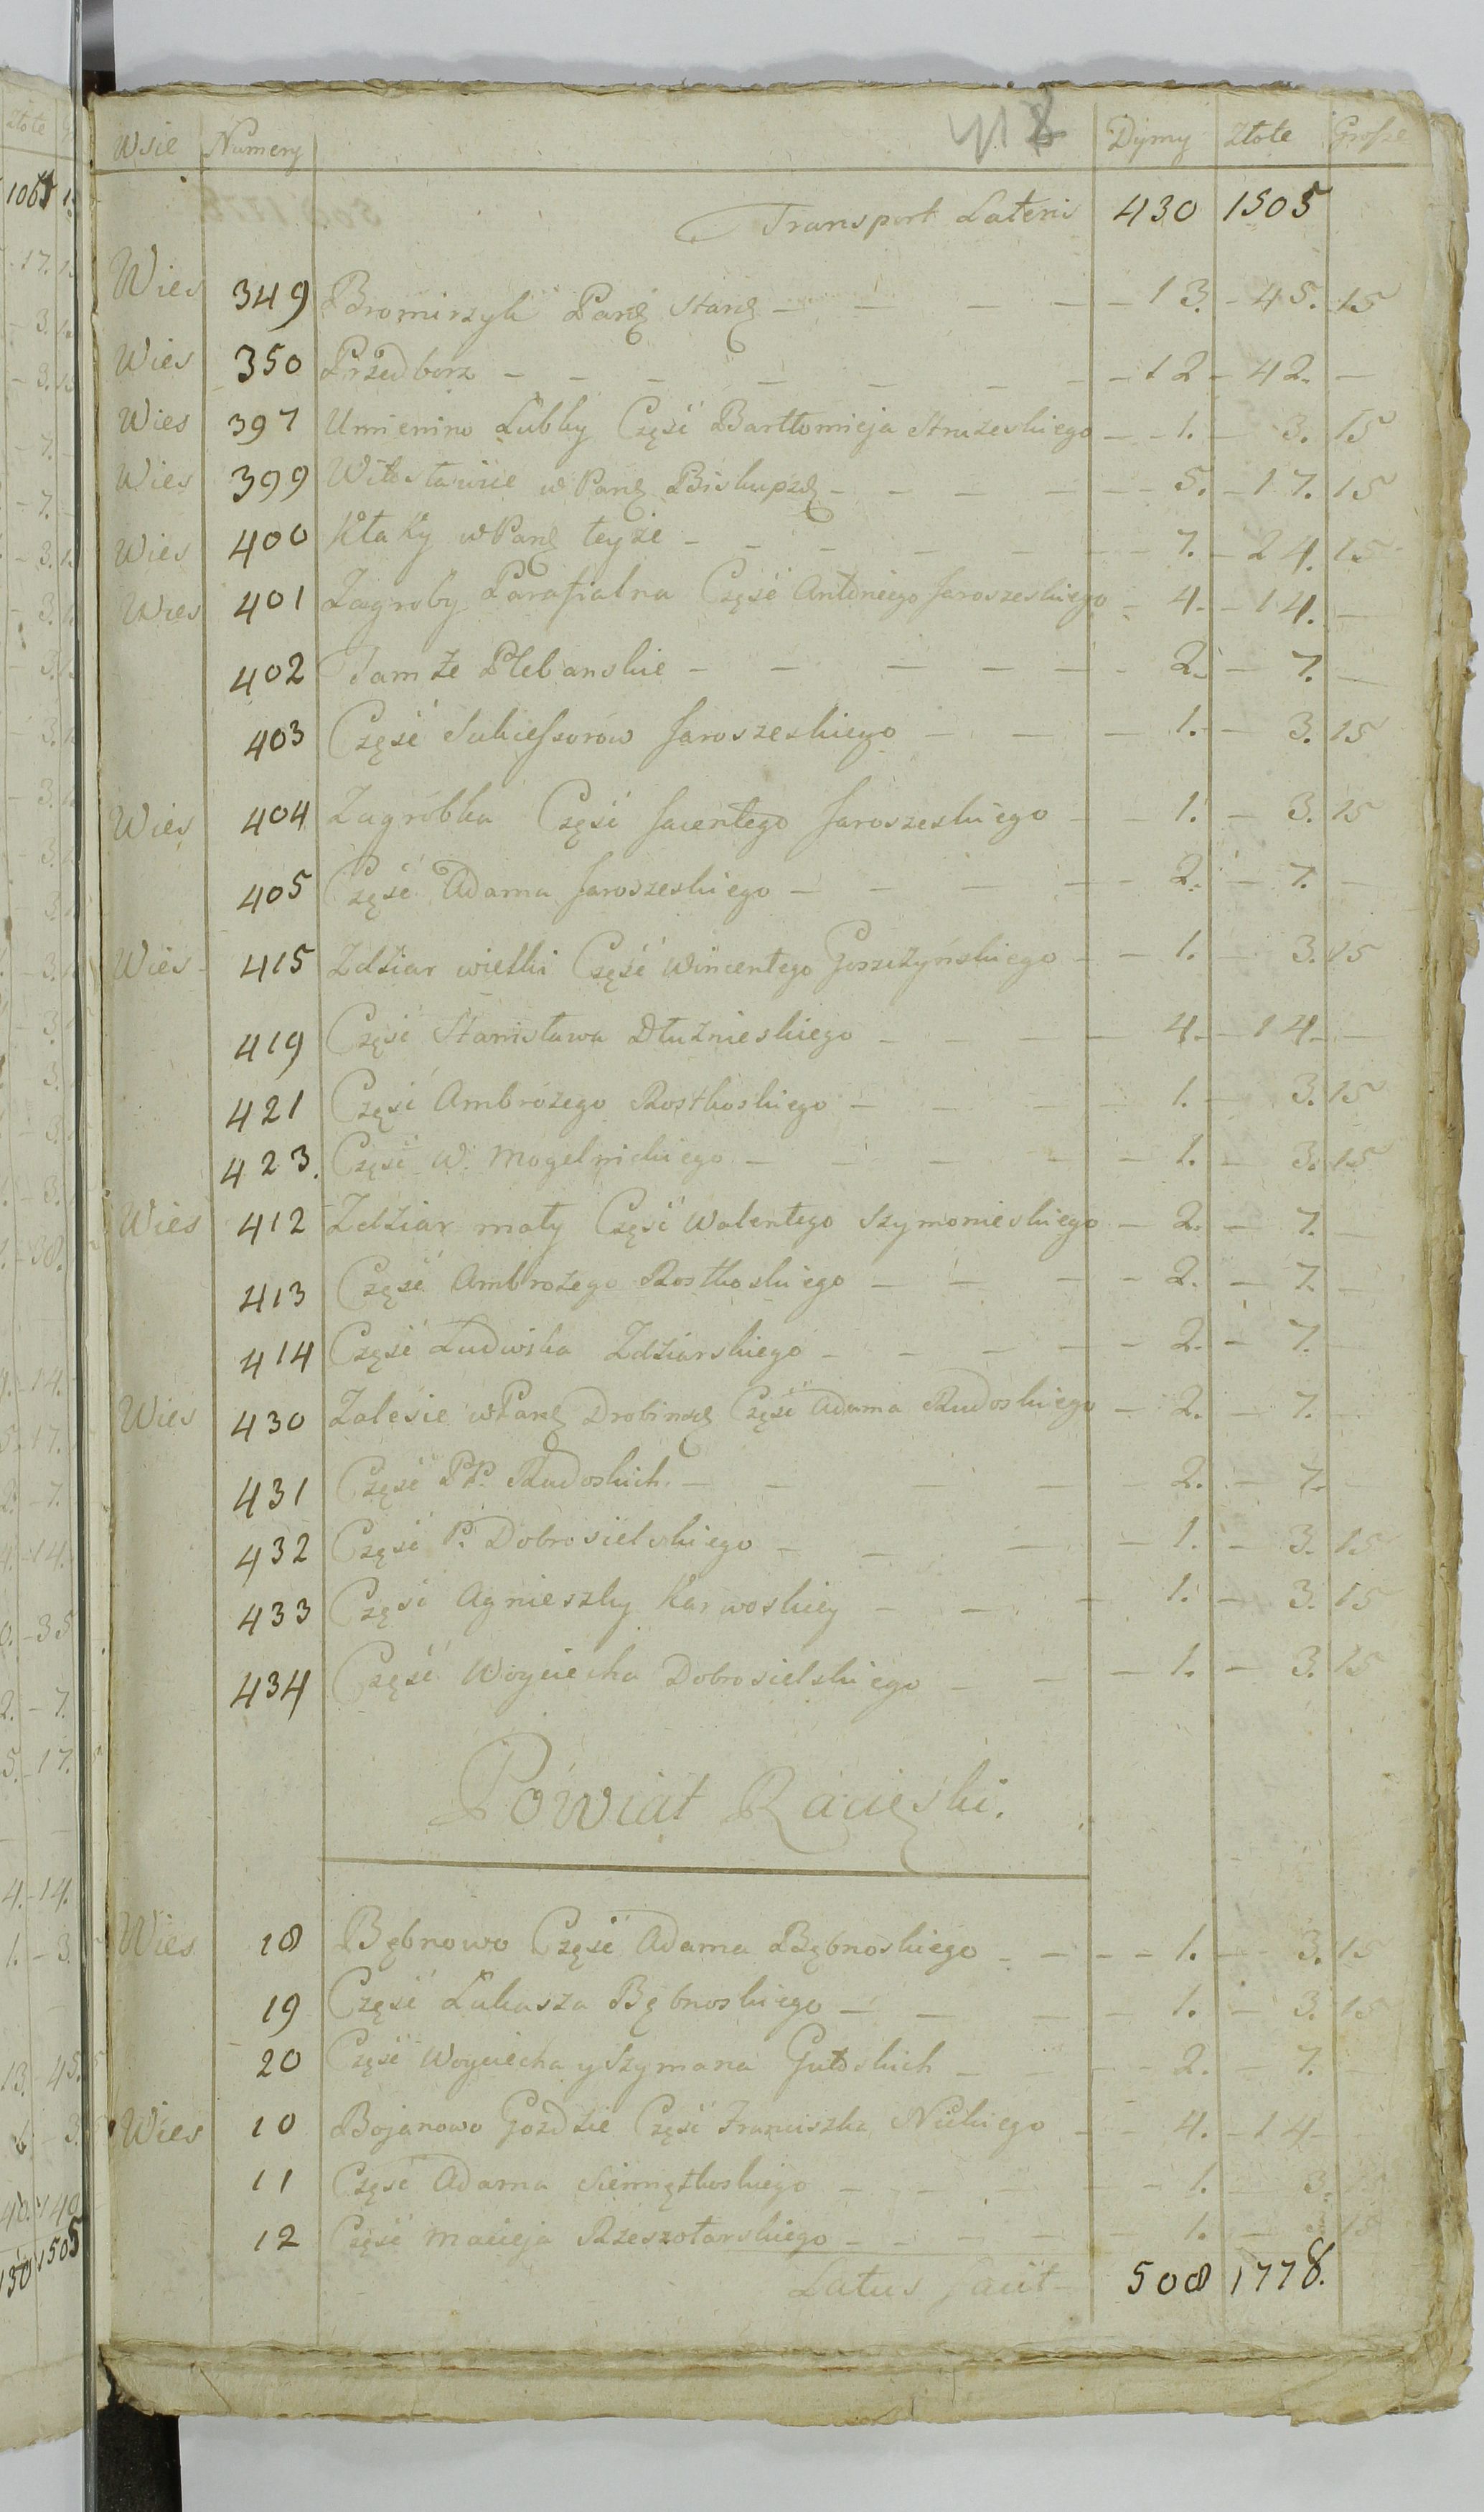 Wsie Numery 418 Dymy Złote Grosze
Transport Lateris 430 1505
Wies 349 Bromirzyk Par. Star. 13. 45. 15
Wies 350 Przedborz 12 42.
Wies 397 Umienino Łubky Część Bartłomieja Struzeskiego 1. 3. 15
Wies 399 Witosławice w Par. Biskup. 5. 17. 15
Wies 400 Kłaky w Par. teyże 7. 24. 15
Wies 401 Zagroby Parafialna Część Antoniego Jaroszeskiego 4. 14.
402 Tamże Plebanskie 2. 7.
403 Część Sukiessorow Jaroszeskiego 1. 3. 15
Wies 404 Zagróbka Część Jacentego Jaroszeskiego 1. 3. 15
405 Część Adama Jaroszeskiego 2. 7.
Wies 415 Zdżiar wielki Część Wincentego Goszczyńskiego 1. 3. 15
419 Część Stanisława Dłużnieskiego 4. 14.
421 Część Ambrożego Rostkoskiego 1. 3. 15
423. Część W. Mogelnickiego 1. 3. 15
Wies 412 Zdżiar mały Część Walentego Szymonieskiego 2. 7.
413 Część Ambrożego Rostkoskiego 2. 7.
414 Część Ludwika Zdżiarskiego 2. 7.
Wies 430 Zalesie w Par. Drobinsk. Część Adama Rudoskiego 2. 7.
431 Część PP. Rudoskich 2. 7.
432 Część P. Dobrosielskiego 1. 3. 15
433 Część Agnieszky Karwoskiey 1. 3. 15
434 Część Woyciecha Dobrosielskiego 1. 3. 15
Powiat Racięski.
Wies 18 Bębnowo Część Adama Bębnoskiego 1. 3. 15
19 Część Łukasza Bębnoskiego 1. 3. 15
20 Część Woyciecha y Szymana Gutoskich 2. 7.
Wies 10 Bojanowo Gozdzie Część Franciszka Nickiego 4. 14
11 Część Adama Siemiątkoskiego 1. 3. 15
12 Część Macieja Rzeszotarskiego 1. 3. 15
Latus facit 508 1778.